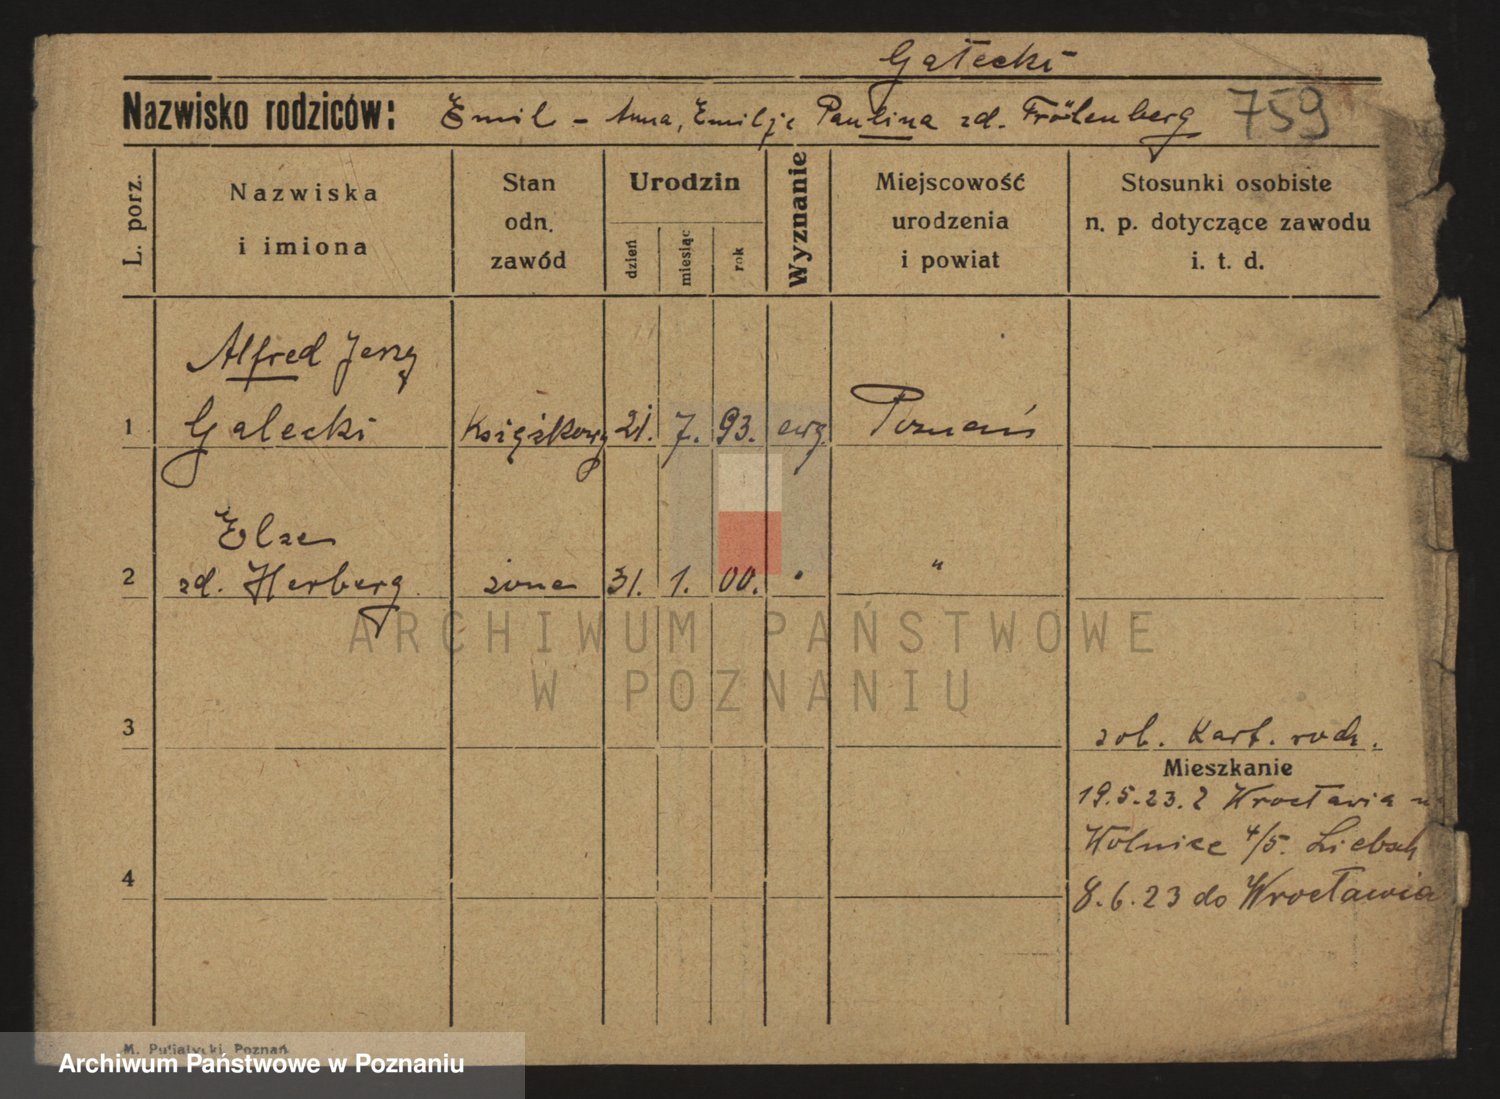 Gałecki
Nazwisko rodziców: Emil - Anna, Emilje Paulina zd. Frölenberg 759
L. porz.
Nazwiska i imiona
Stan odn. zawód
Urodzin
dzień miesiąc rok
Wyznanie
Miejscowość urodzenia i powiat
Stosunki osobiste n. p. dotyczące zawodu i. t. d.
Alfred Jerzy
1 Galecki Książkowy 21. 7. 93. ewg Poznań
Elze
2 zd. Herberg żona 31. 1. 00. "
ARCHIWUM PAŃSTWOWE
W POZNANIU
3 zob. Kart. rodz.
Mieszkanie
19.5.23. z Wrocławia
Wolnice 4/5.
4
8.6.23 do Wrocławia
M. Putiatycki, Poznań
Archiwum Państwowe w Poznaniu